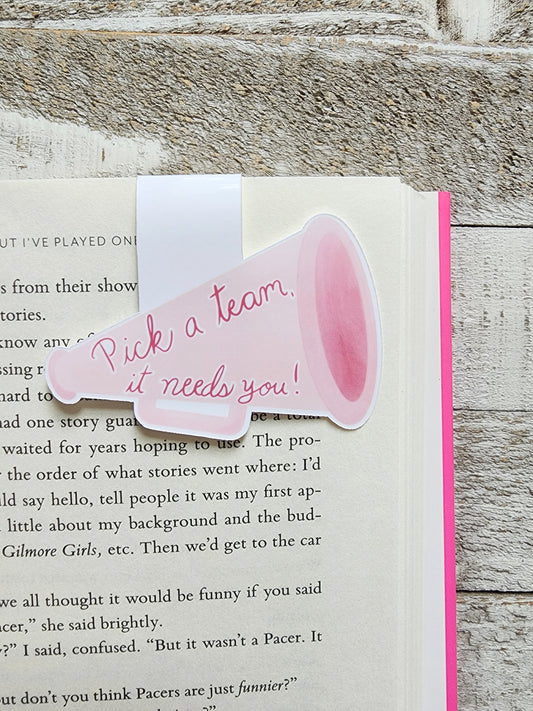 UT I'VE PLAYED ONE
s from their show
tories.
know any of
ssing
hard to
had one story
Pick a team,
it needs you!
be a total
waited for years hoping to use. The pro-
the order of what stories went where: I'd
ld say hello, tell people it was my first ap-
little about my background and the bud-
Gilmore Girls, etc. Then we'd get to the car
we all thought it would be funny if you said
acer," she said brightly.
?" I said, confused. "But it wasn't a Pacer. It
ut don't you think Pacers are just funnier?"